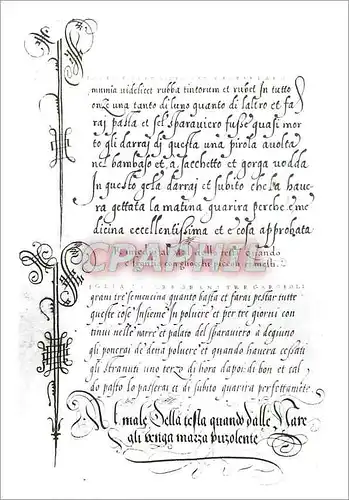 mumia videlicet rubba tintorum et rubet in tutto
onze una tanto di luno quanto di laltro et fa
raj pasta et sel sparaviero fusse quasi mor
to gli darraj di questa una pirola avolta
nel bambaso et a sacchetto et gorga vodda
In questo gela darraj et subito che la have
ra gettata la matina quarira perche e me
dicina eccellentissima et e cosa approbata
grani tre semencina quanto basta et farai pestar tutte
queste cose Insieme In polvere et per tre giorni con
tinui nelle narre et palato del sparaviero à degiuno
gli ponerai de detta polvere et quando havera cessati
gli stranuti uno terzo di hora dapoi di bon et cal
do pasto lo passerai et di subito quarira perfettamete
Al male Della testa quando dalle Nare
gli venga mazza puzolente